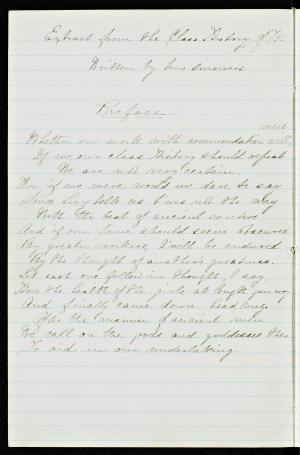 Extract from the Class History of 75.
Written by
Preface.
meet
Whether our work with commendation will
If we our class History should repeat
We are not very certain.
For if we were would we dare to say
Since Livy tells us 'twas not the way
With the best of ancient writers
And if our fame should seem obscured
By greater workers, 'twill be endured
By the thought of another's greatness.
Let each one follow in thought, I say,
How the health of the girls at length gave way
And finally came down headlong.
After the manner of ancient men
We call on the gods and goddesses then
To aid in our undertaking.